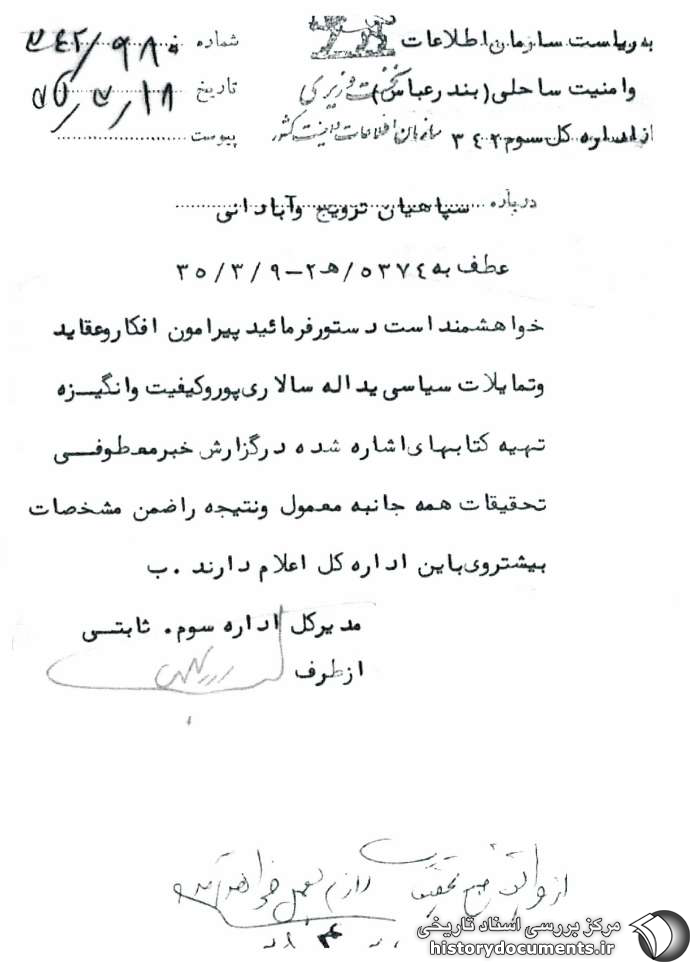 به ریاست سازمان اطلاعات
شماره ۳۴۲/۹۸۰
وامنیت ساحلی (بندرعباس)
نخست وزیری
تاریخ
از اداره کل سوم ۳۴۲
سازمان اطلاعات و امنیت کشور
پیوست
درباره سپاهیان ترویج وآبادانی
عطف به ۵۳۷۴/ه‍ ۲-۳۵/۳/۹
خواهشمند است دستورفرمائید پیرامون افکاروعقاید
وتمایلات سیاسی یداله سالاری‌پوروکیفیت وانگیزه
تهیه کتابهای اشاره شده درگزارش خبرمعطوفی
تحقیقات همه جانبه معمول ونتیجه راضمن مشخصات
بیشتروی باین اداره کل اعلام دارند .ب
مدیرکل اداره سوم. ثابتی
ازطرف
مرکز بررسی اسناد تاریخی
historydocuments.ir